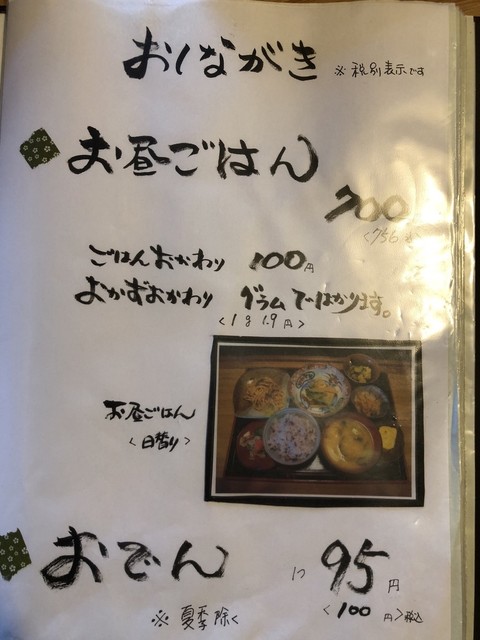 おしながき ※税別表示です
お昼ごはん
700
<756
ごはんおかわり 100円
おかずおかわり グラムではかります。
<1g 1.9円>
お昼ごはん
<日替り>
おでん 1つ 95円
※夏季除く <100円>税込